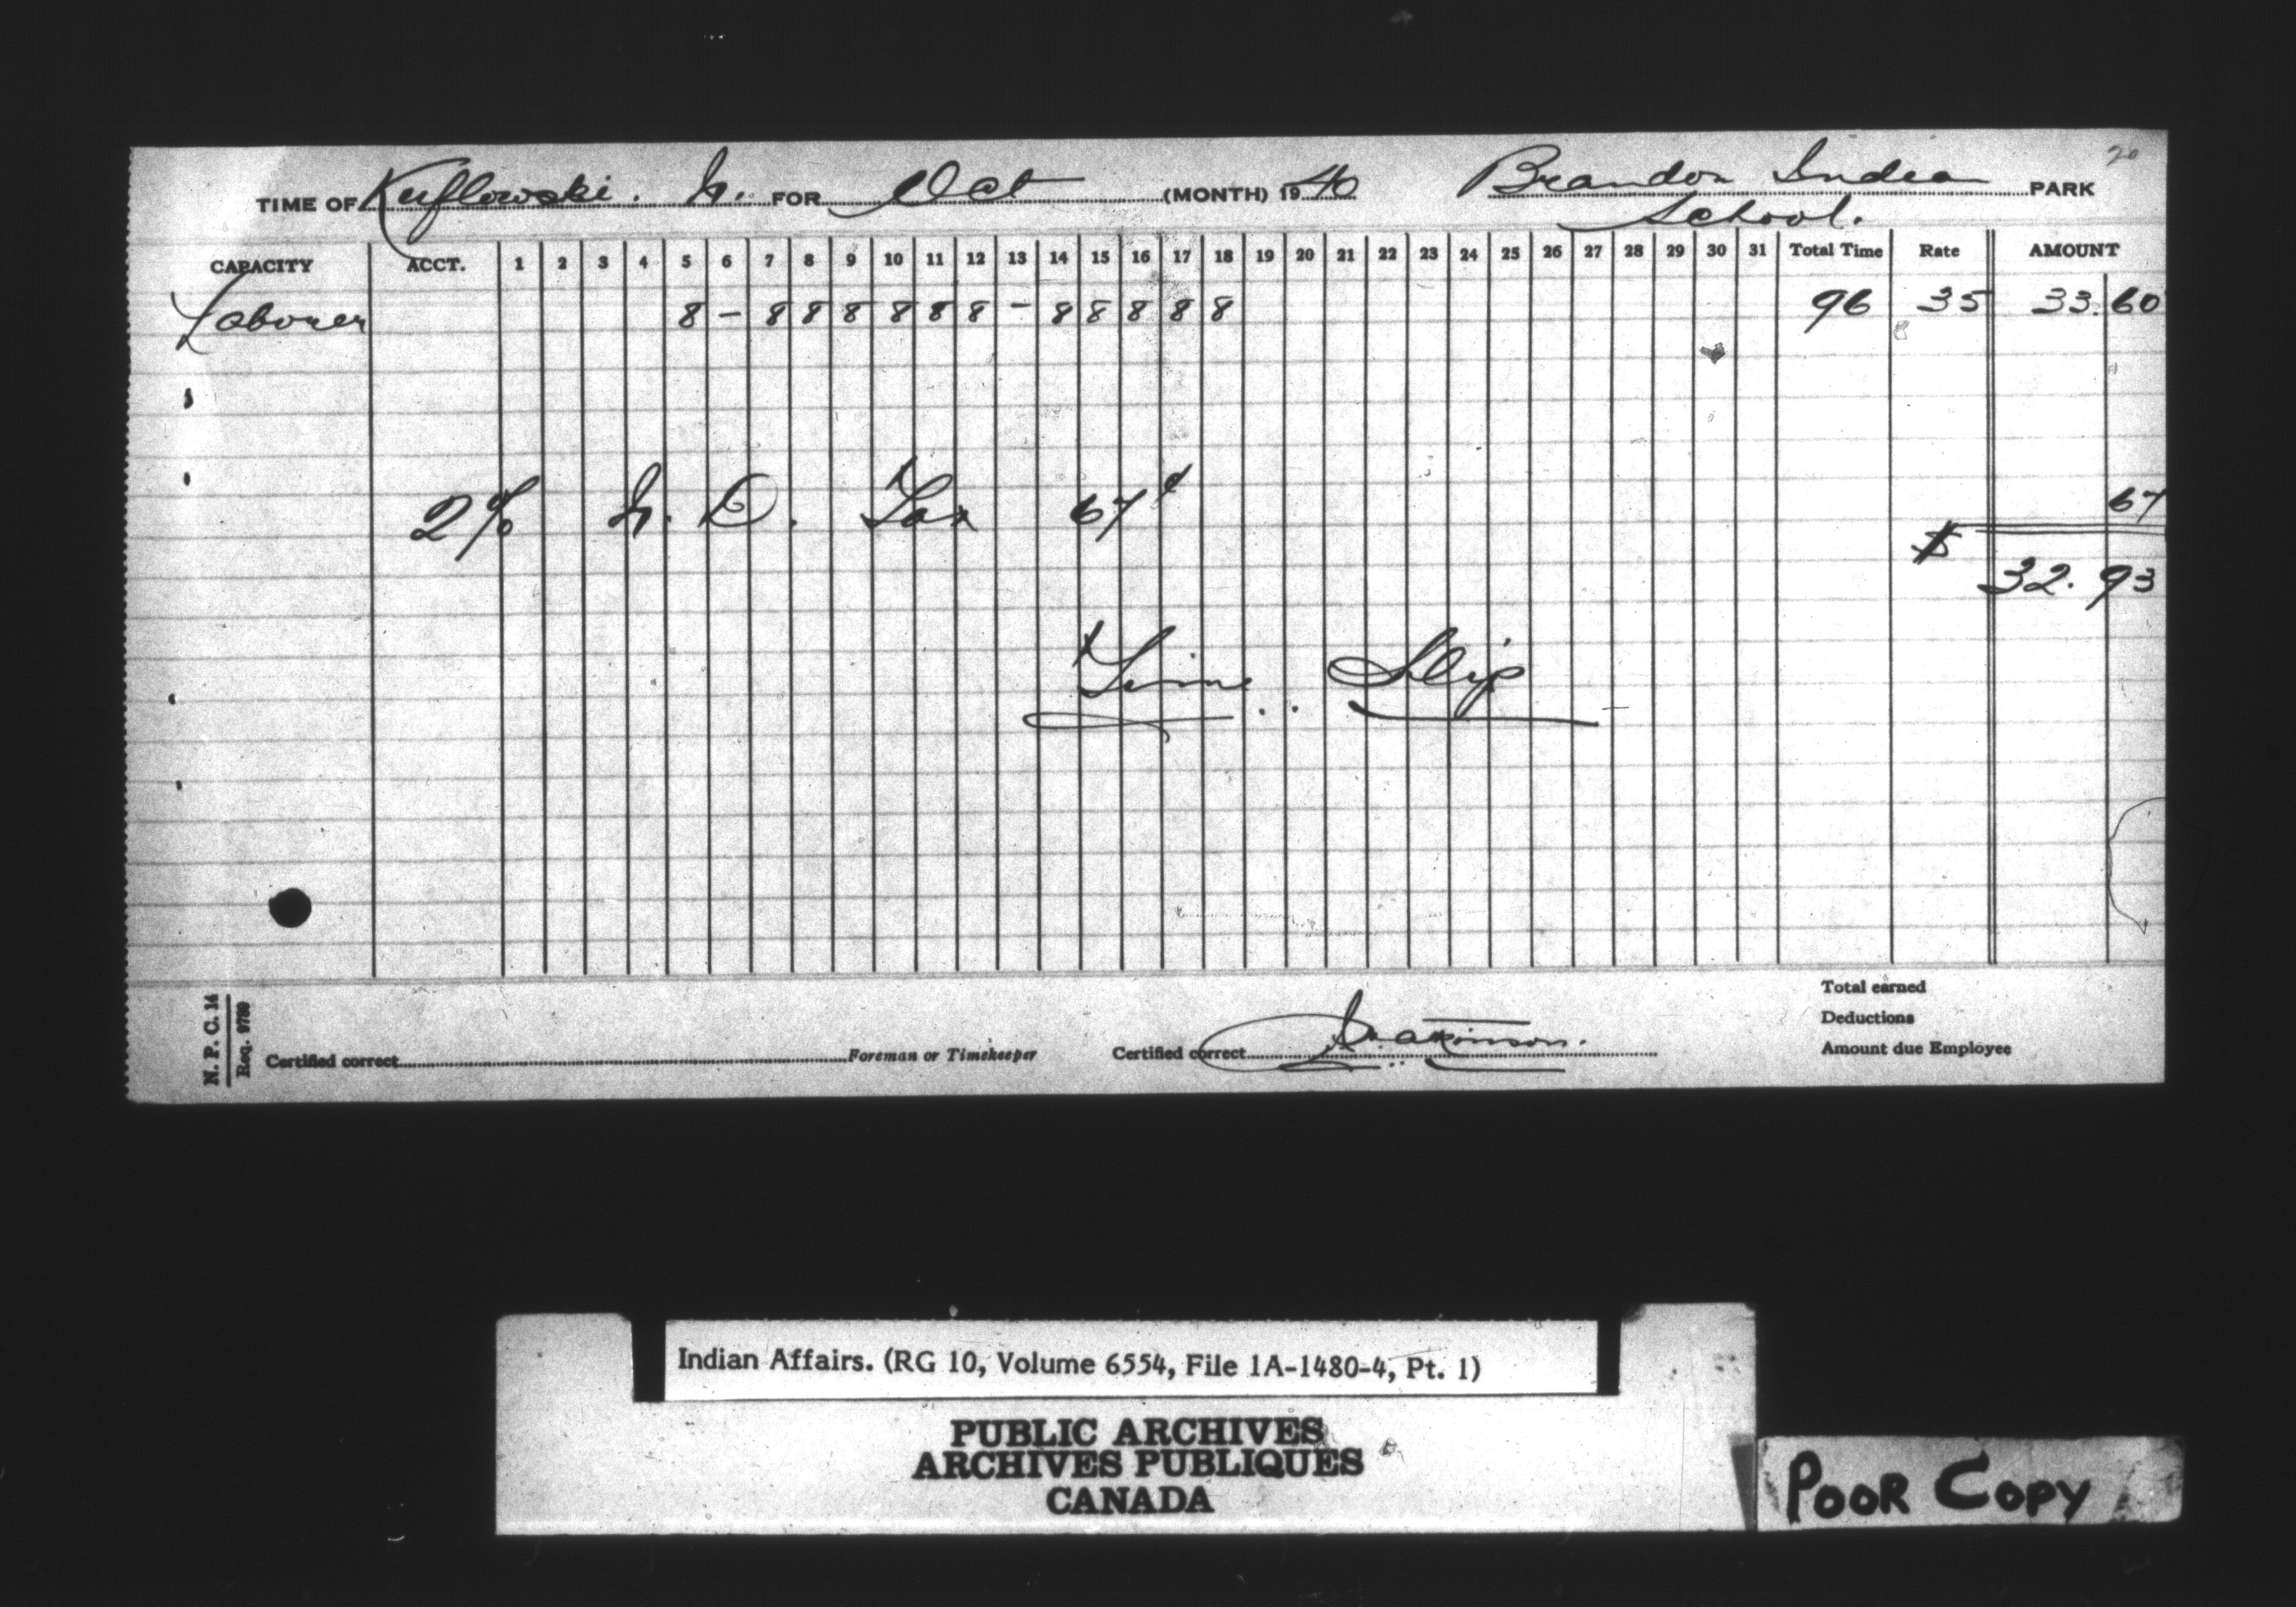 20
TIME OF Kuflowski. N. FOR Oct (MONTH) 1940 Brandon India School. PARK
CAPACITY ACCT. 1 2 3 4 5 6 7 8 9 10 11 12 13 14 15 16 17 18 19 20 21 22 23 24 25 26 27 28 29 30 31 Total Time Rate AMOUNT
Laborer 8 - 8 8 8 8 8 8 - 8 8 8 8 8 96 35 33.60
2% N. D. Tax 67¢ 67
$ 32.93
Time Slip
Total earned
Deductions
Certified correct Foreman or Timekeeper Certified correct Amount due Employee
N. P. C. 14
Req. 9789
Indian Affairs. (RG 10, Volume 6554, File 1A-1480-4, Pt. 1)
PUBLIC ARCHIVES
ARCHIVES PUBLIQUES
CANADA
POOR COPY